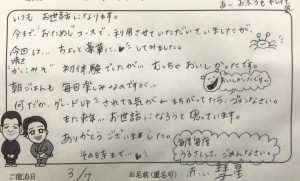 いつも お世話になります。
今まで、おためしコースで、利用させていただいていましたが、
今回は… ちょっと 豪華に してみました。
かにみそ 初体験でしたが… むっちゃ おいしかったです。
朝ごはんも 毎回楽しみなのですが、
何だか、グレードUP されてる気が… まちがってたら、ごめんなさい。
また 来年… お世話になろうと 思っています。
ありがとう ございました。
その日まで…
ご宿泊日 3/7 お名前(匿名可)
うるさくして、ごめんなさい。
おいしかったでーす